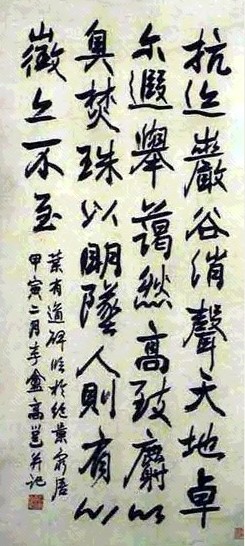 抗迹巖谷消聲天地卓
尔遐舉藹然高致麝以
臭焚珠以明墜人則有以
徵之不至
葉有道碑臨於絕景窮居
甲寅二月李盦高邕并記